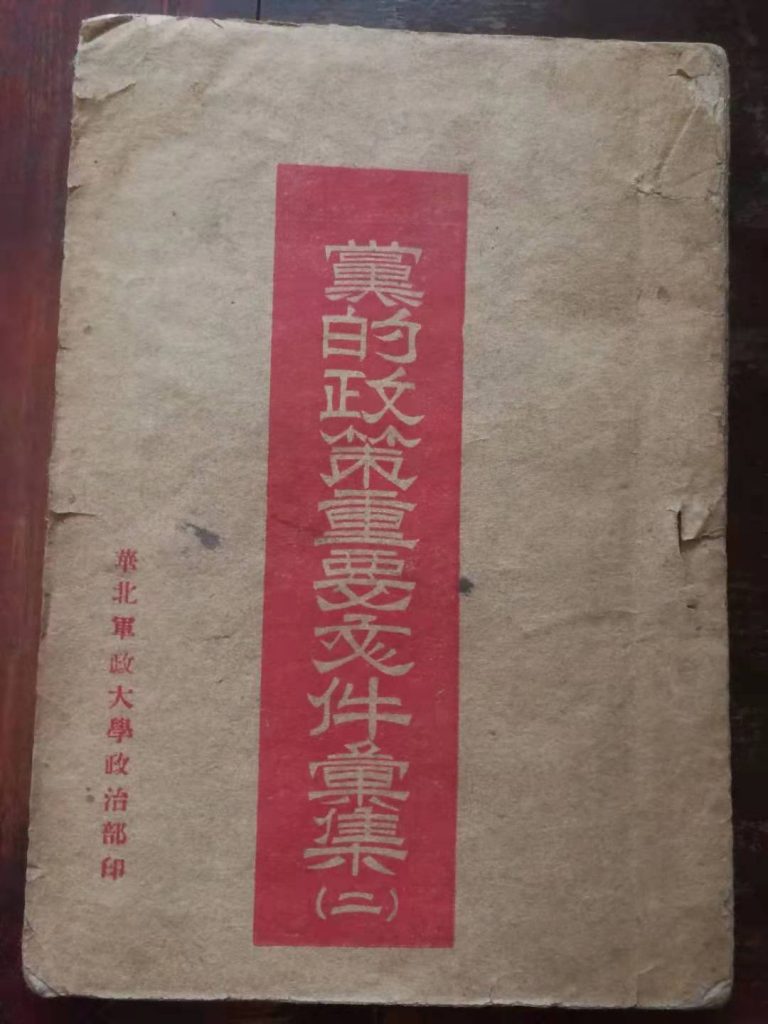 黨的政策重要文件彙集(二)
華北軍政大學政治部印